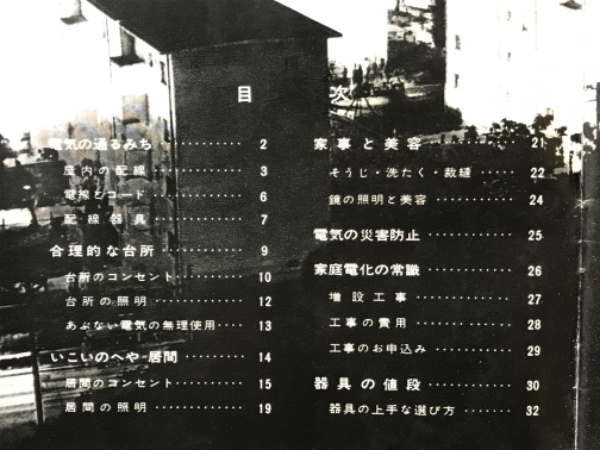 目次
電気の通るみち ············ 2
屋内の配線 ············ 3
電線とコード ············ 6
配線器具 ············ 7
合理的な台所 ············ 9
台所のコンセント ········· 10
台所の照明 ············ 12
あぶない電気の無理使用 ···· 13
いこいのへや 居間 ········· 14
居間のコンセント ········· 15
居間の照明 ············ 19
家事と美容 ············ 21
そうじ・洗たく・裁縫 ····· 22
鏡の照明と美容 ············ 24
電気の災害防止 ············ 25
家庭電化の常識 ············ 26
増設工事 ············ 27
工事の費用 ············ 28
工事のお申込み ············ 29
器具の値段 ············ 30
器具の上手な選び方 ······· 32